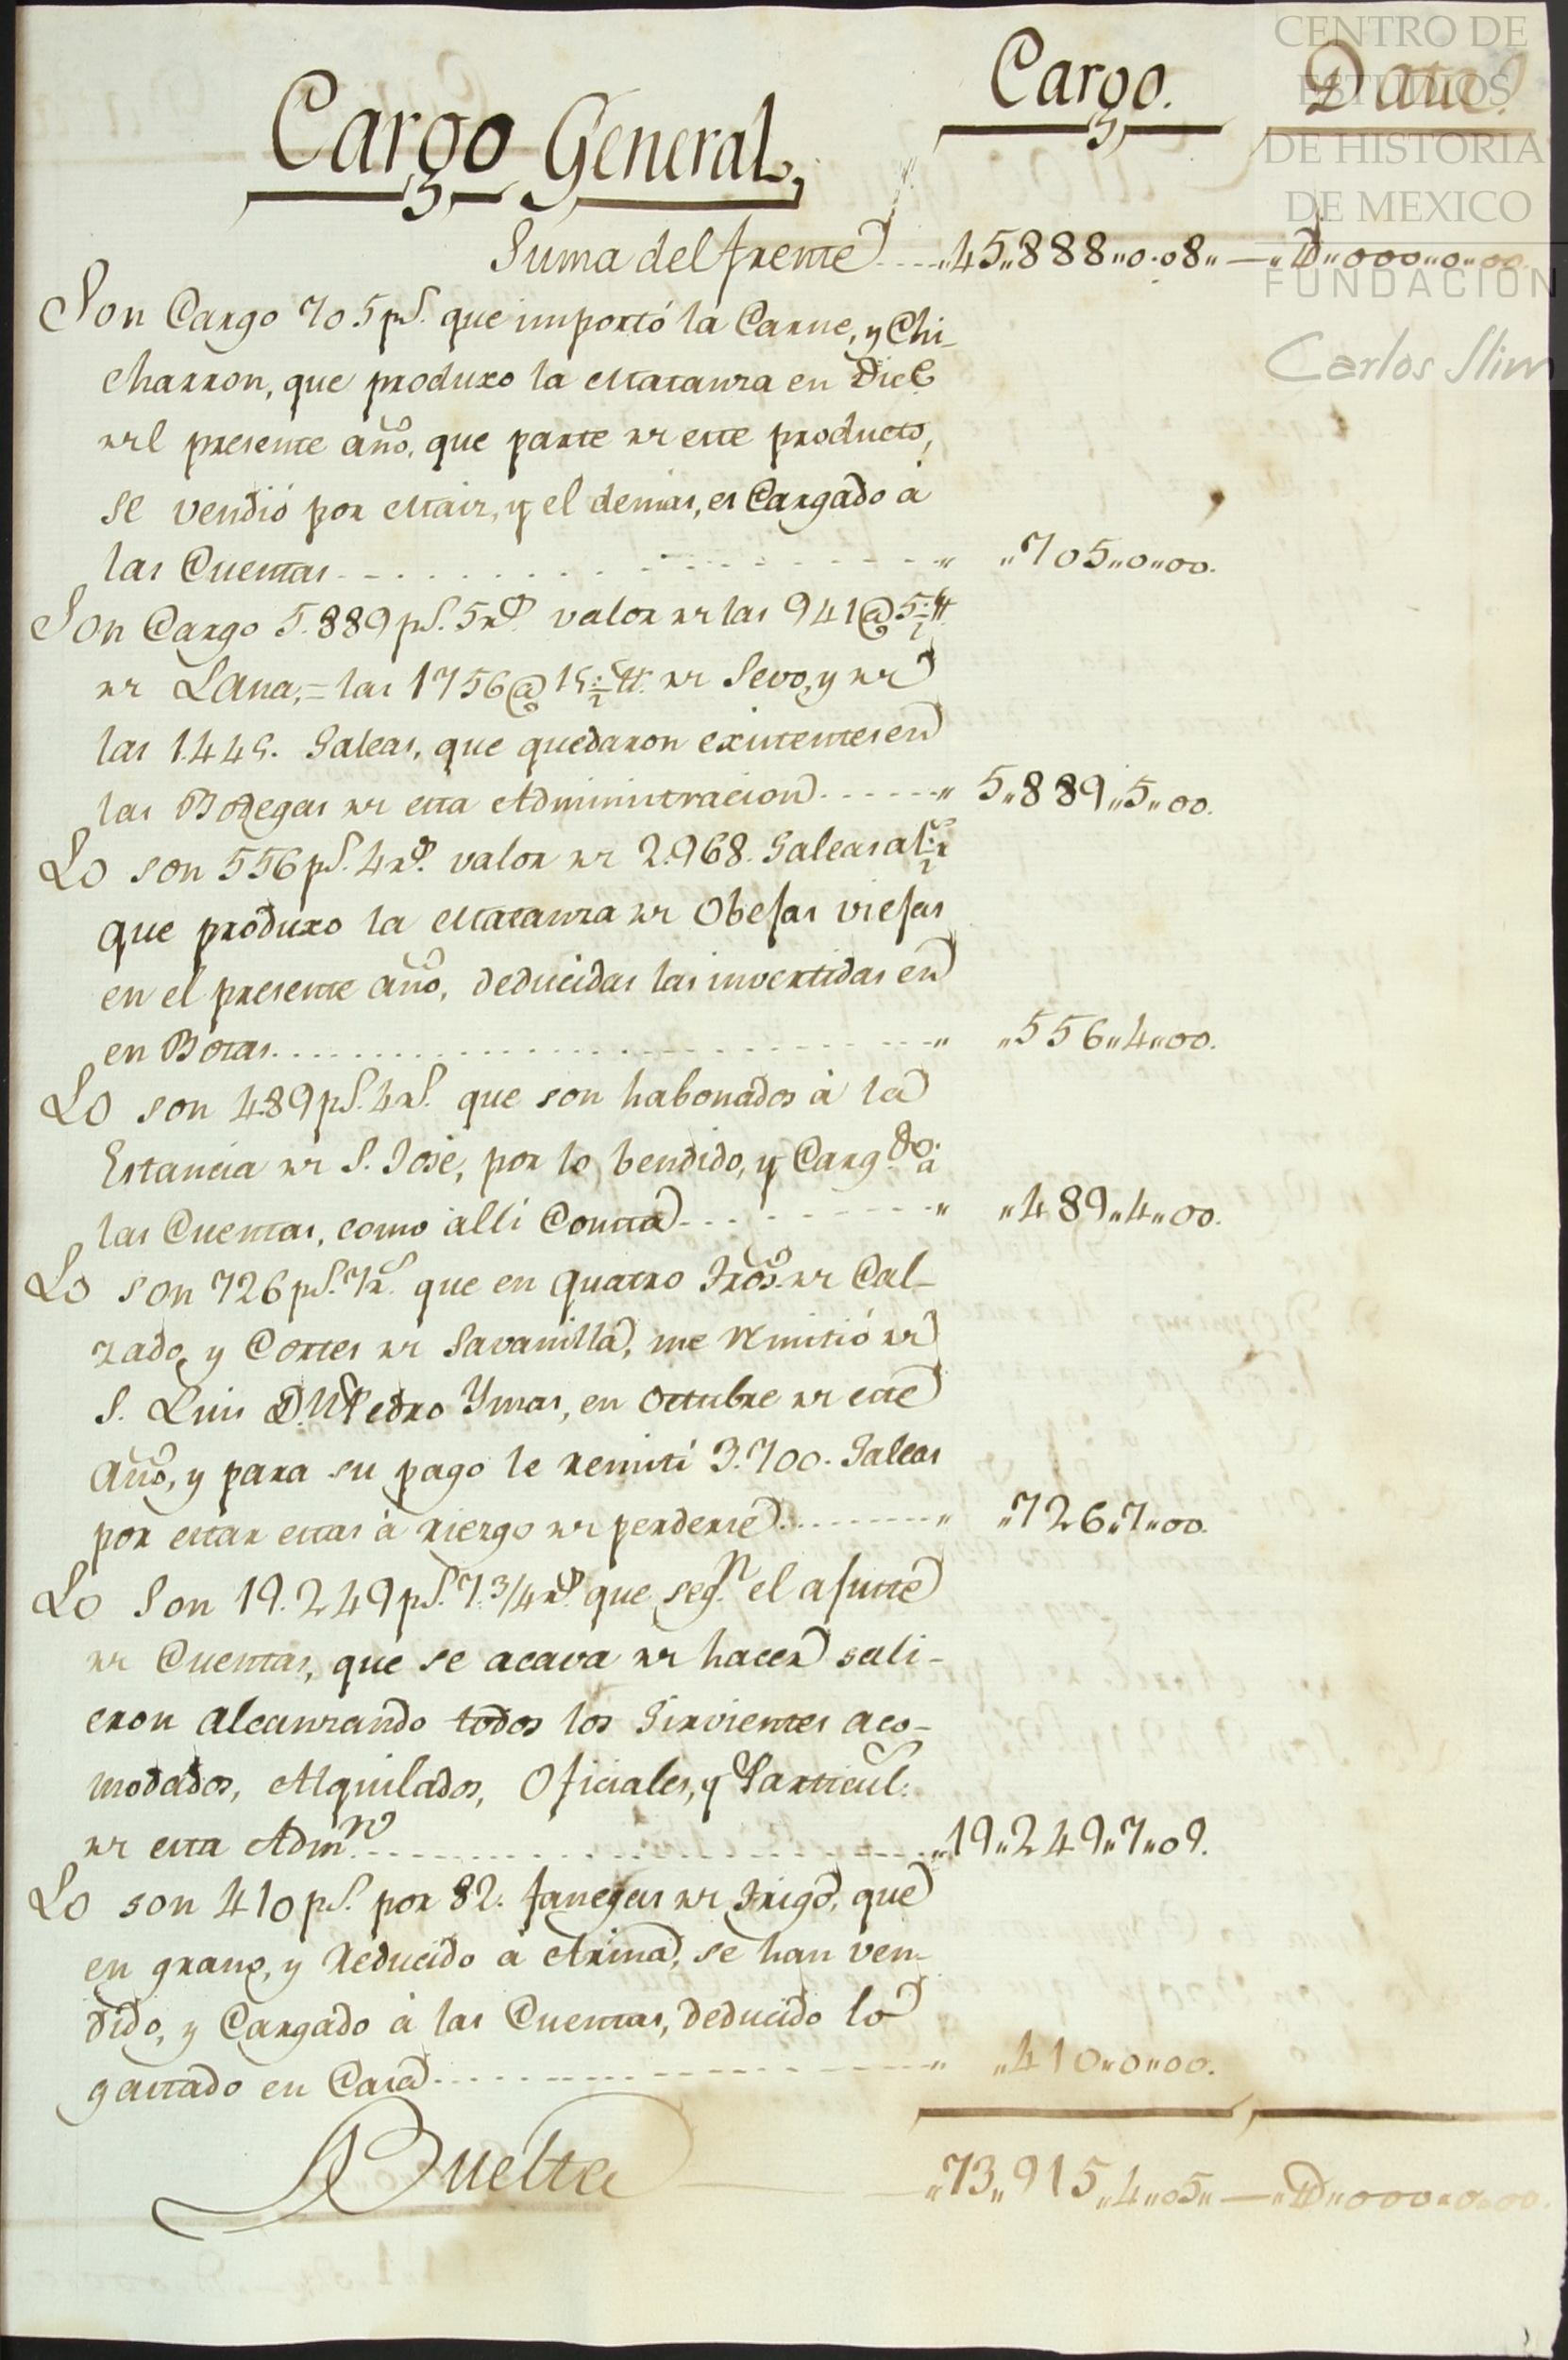 Cargo. Data.
Cargo General,
Suma del frente „45„888„0„08„ — „D„000„0„00.
Son Cargo 705 ps. que importó la Carne, y Chi-
charron, que produxo la Matanza en Dice
del presente año, que parte de este producto,
se vendió por Maiz, y el demas, es Cargado á
las Cuentas „ „705„0„00.
Son Cargo 5.889 ps. 5 rs. valor de las 941@ 5½ ℔.
de Lana,= las 1756@ 15½ ℔. de Sevo, y de
las 1.445. Saleas, que quedaron existentes en
las Bodegas de esta Administracion „ 5„889„5„00.
Lo son 556 ps. 4 rs. valor de 2.968. Saleas a 1½ r
que produxo la Matanza de Obejas viejas
en el presente año, deducidas las invertidas en
en Botas „ „556„4„00.
Lo son 489 ps. 4 rs. que son habonados á la
Estancia de S. José, por lo bendido, y Cargdo. a
las Cuentas, como alli Consta „ „489„4„00.
Lo son 726 ps. 7 rs. que en quatro Tros. de Cal-
zado, y Cortes de Savanilla, me remitió de
S. Luis D. Pedro Ymas, en Octubre de este
año, y para su pago le remiti 3.700. Saleas
por estar estas á riezgo de perderse „ „726„7„00.
Lo Son 19.249 ps. 7.3/4 rs. que segn. el ajuste
de Cuentas, que se acava de hacer sali-
eron alcanzando todos los Sirvientes aco-
modados, Alquilados, Oficiales, y Particul.s
de esta Admn. „19„249„7„09.
Lo son 410 ps. por 82. fanegas de Trigo, que
en grano, y reducido á Arina, se han ven-
dido, y Cargado á las Cuentas, deducido lo
gastado en Casa „ „410„0„00.
Buelta „73„915„4„05„ — „D„000„0„00.
CENTRO DE
ESTUDIOS
DE HISTORIA
DE MEXICO
FUNDACION
Carlos Slim